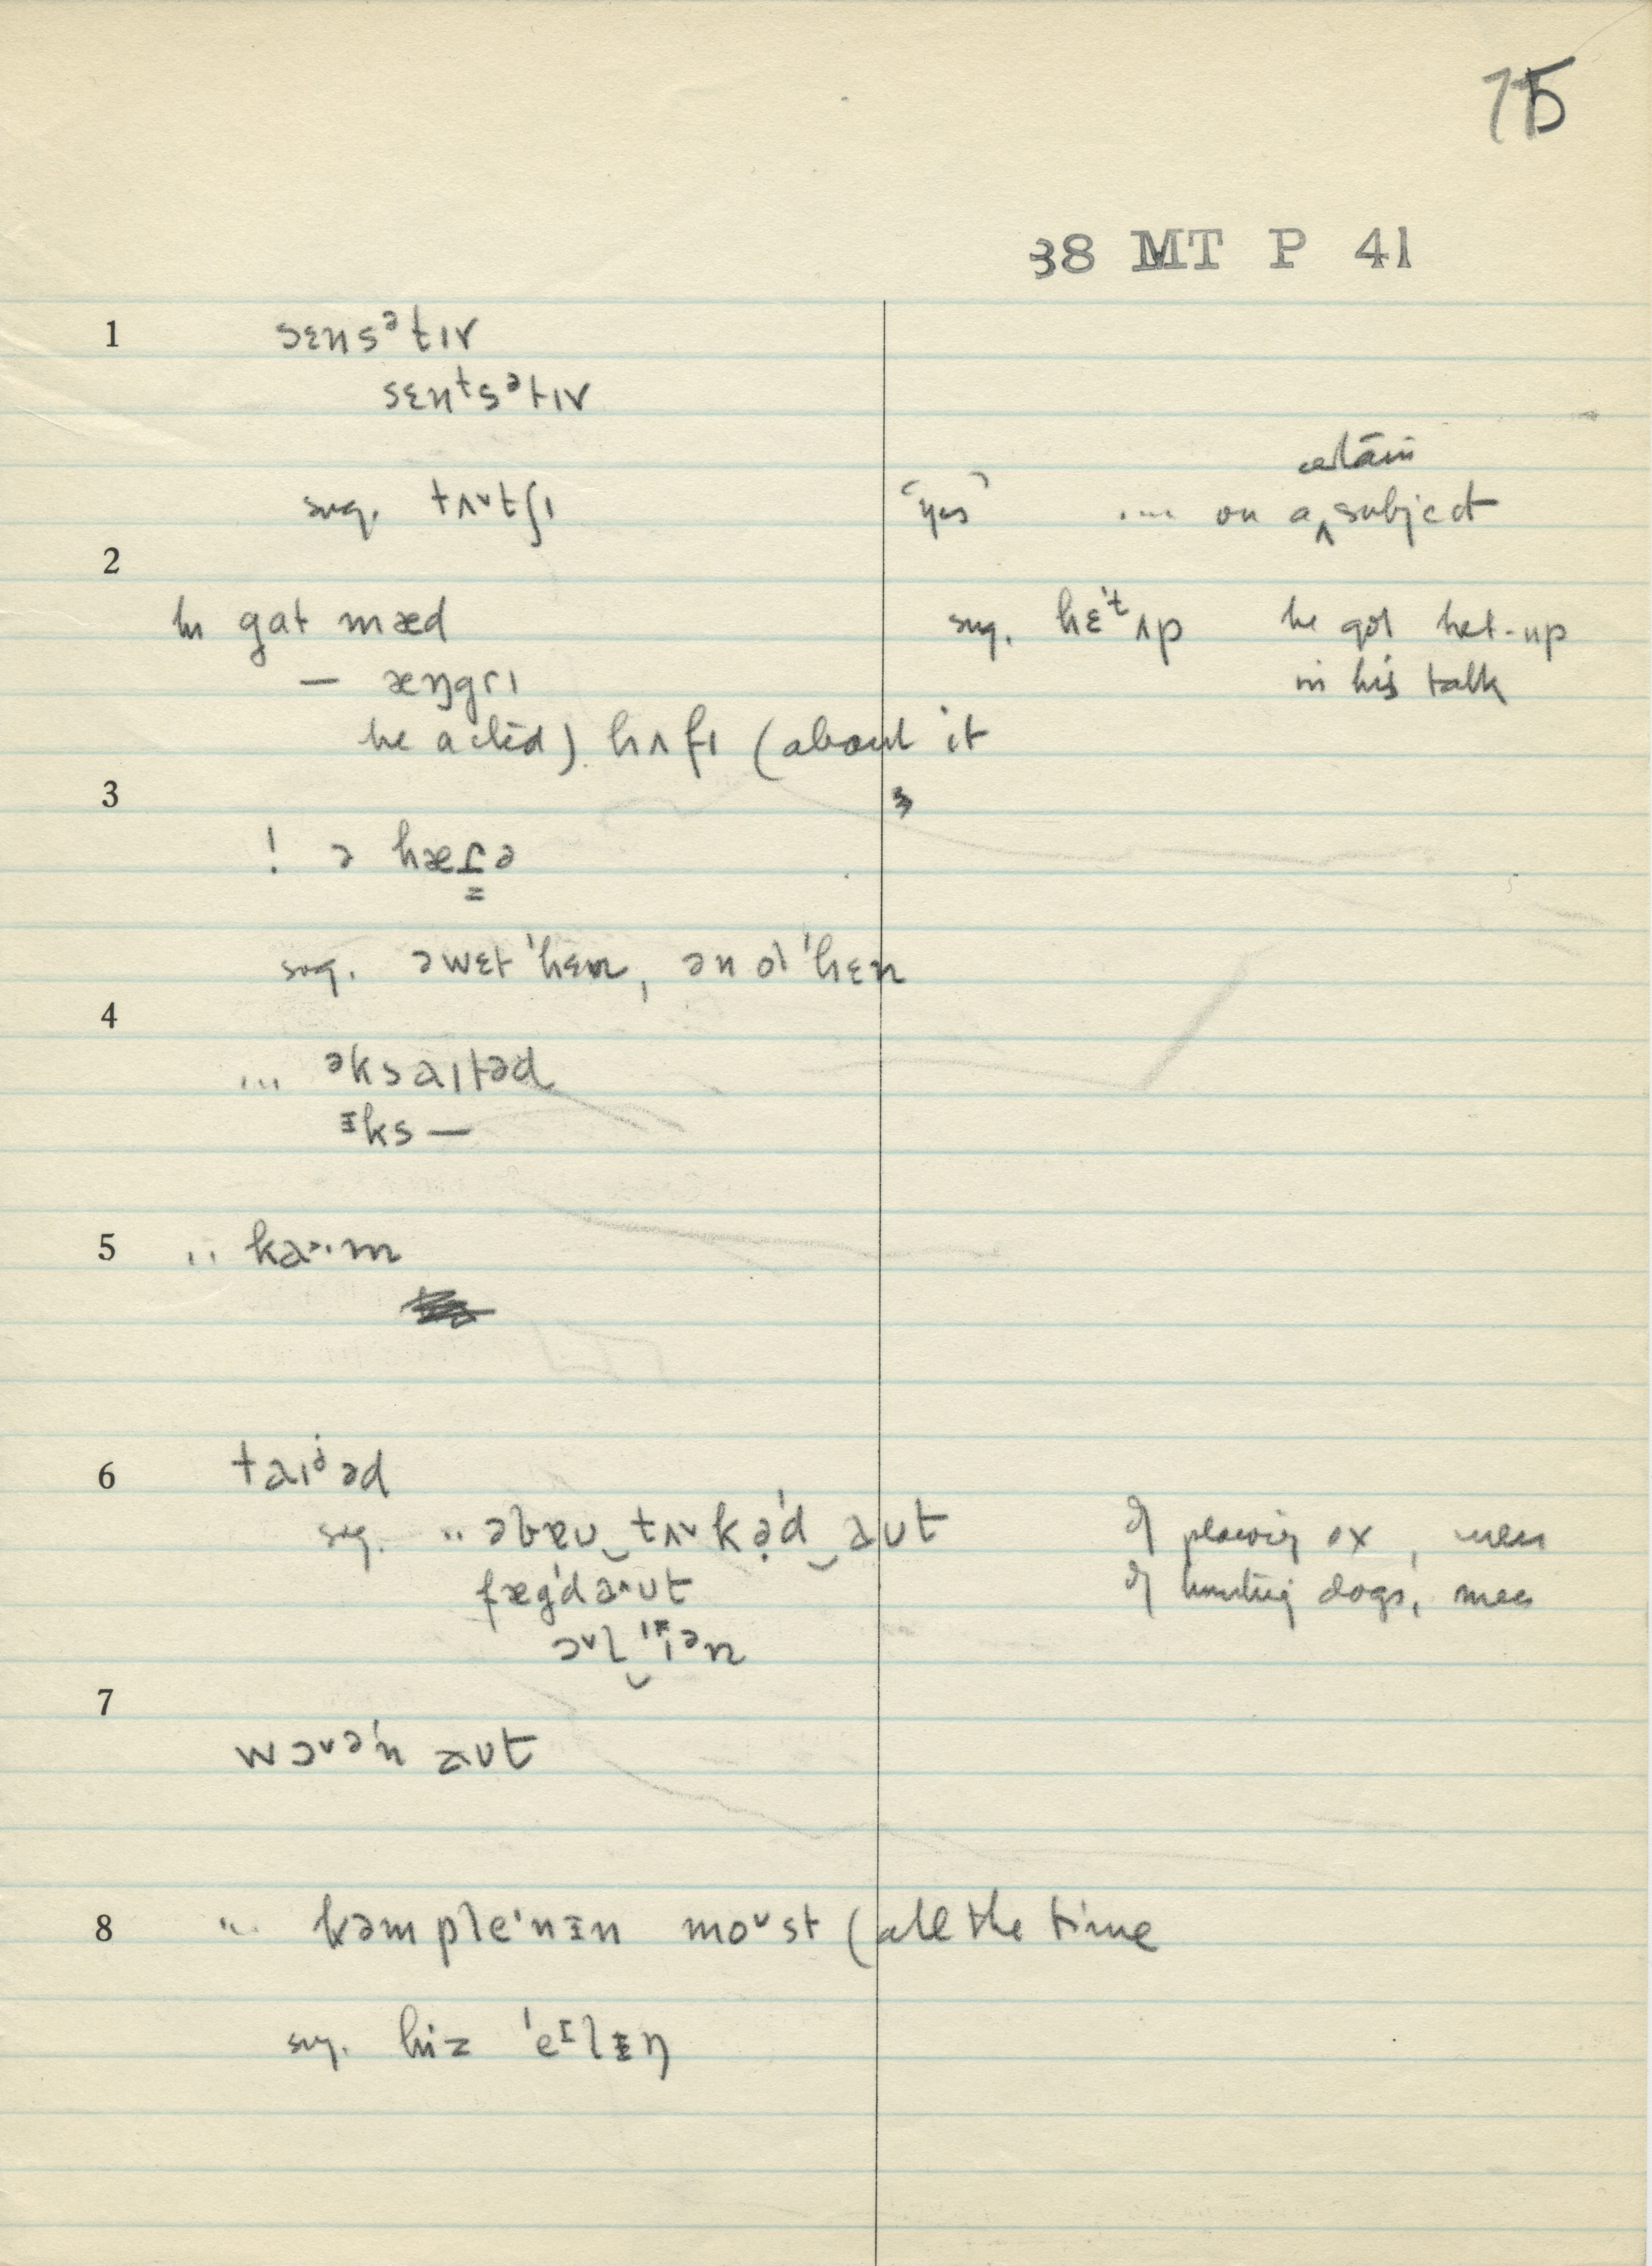 75
38 MT P 41
1 sɛnsᵊtɪv
sɛnᵗsᵊtɪv
sug. tʌᵛtʃɪ "yes" ... on a ‸ certain subject
2
he gat mæd sug. hɛ't ʌp he got het-up
— æŋgrɪ in his talk
he acted) hʌfɪ (about it
3
! ə hæɾə
sug. əwɛt 'hɛn, ən ol 'hɛn
4
... əksaɪtəd
ᵻks —
5 .. ka˃·m
6 taɪᵊəd
sug. .. əbɐʊ‿tʌᵛkə̣'d‿aʊt of plowing ox, men
fæg'd a^ʊt of hunting dogs, men
ɔᵛl‿ɪən
7
wɔᵛə'n aʊt
8 ... kəmple'nɪn moᵛst (all the time
sug. hiz 'eᴵlɪŋ